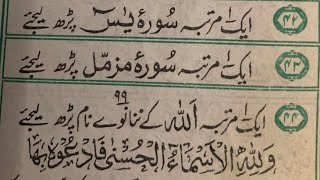 ۴۲ ایک ۱ مرتبہ سورۂ یٰسٓ پڑھ لیجئے
۴۳ ایک ۱ مرتبہ سورۂ مزمّل پڑھ لیجئے
۴۴ ایک ۱ مرتبہ اَللہ کے ننانوے ۹۹ نام پڑھ لیجئے
وَلِلّٰہِ الْاَسْمَآءُ الْحُسْنٰی فَادْعُوْہُ بِہَا